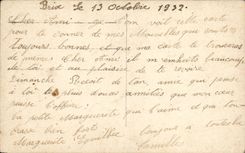 Brix le 13 Octobre 1932.
Cher Ami on voit cette carte
pour te donner de mes Nouvelles qui sont
toujours bonnes et que ma carte te trouveras
de même Cher Ami je m'ennuie beaucoup
de toi et au plaisir de te revoir
Dimanche Reçoit de ton amie qui pense
à toi les plus douces amitiés que mon cœur
puisse t'offrir
ta petite Marguerite que t'aime et qui t'em
brasse bien fort
Marguerite
Bonjour à toute la
famille